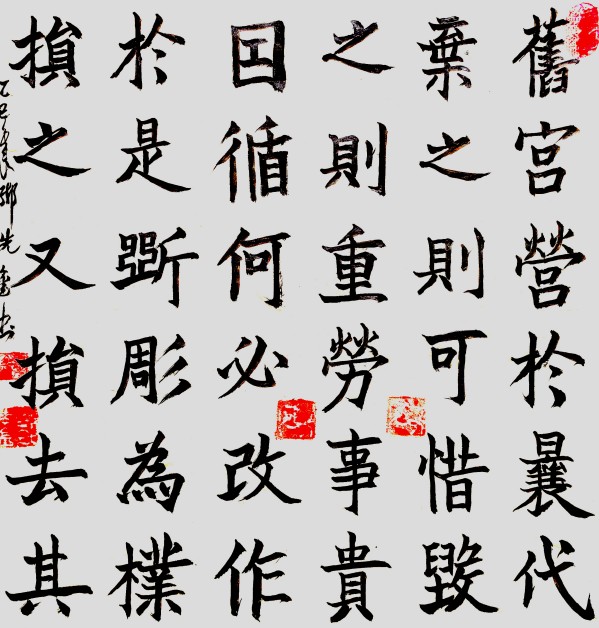 舊宮營於曩代
棄之則可惜毀
之則重勞事貴
因循何必改作
於是斲彫為樸
損之又損去其